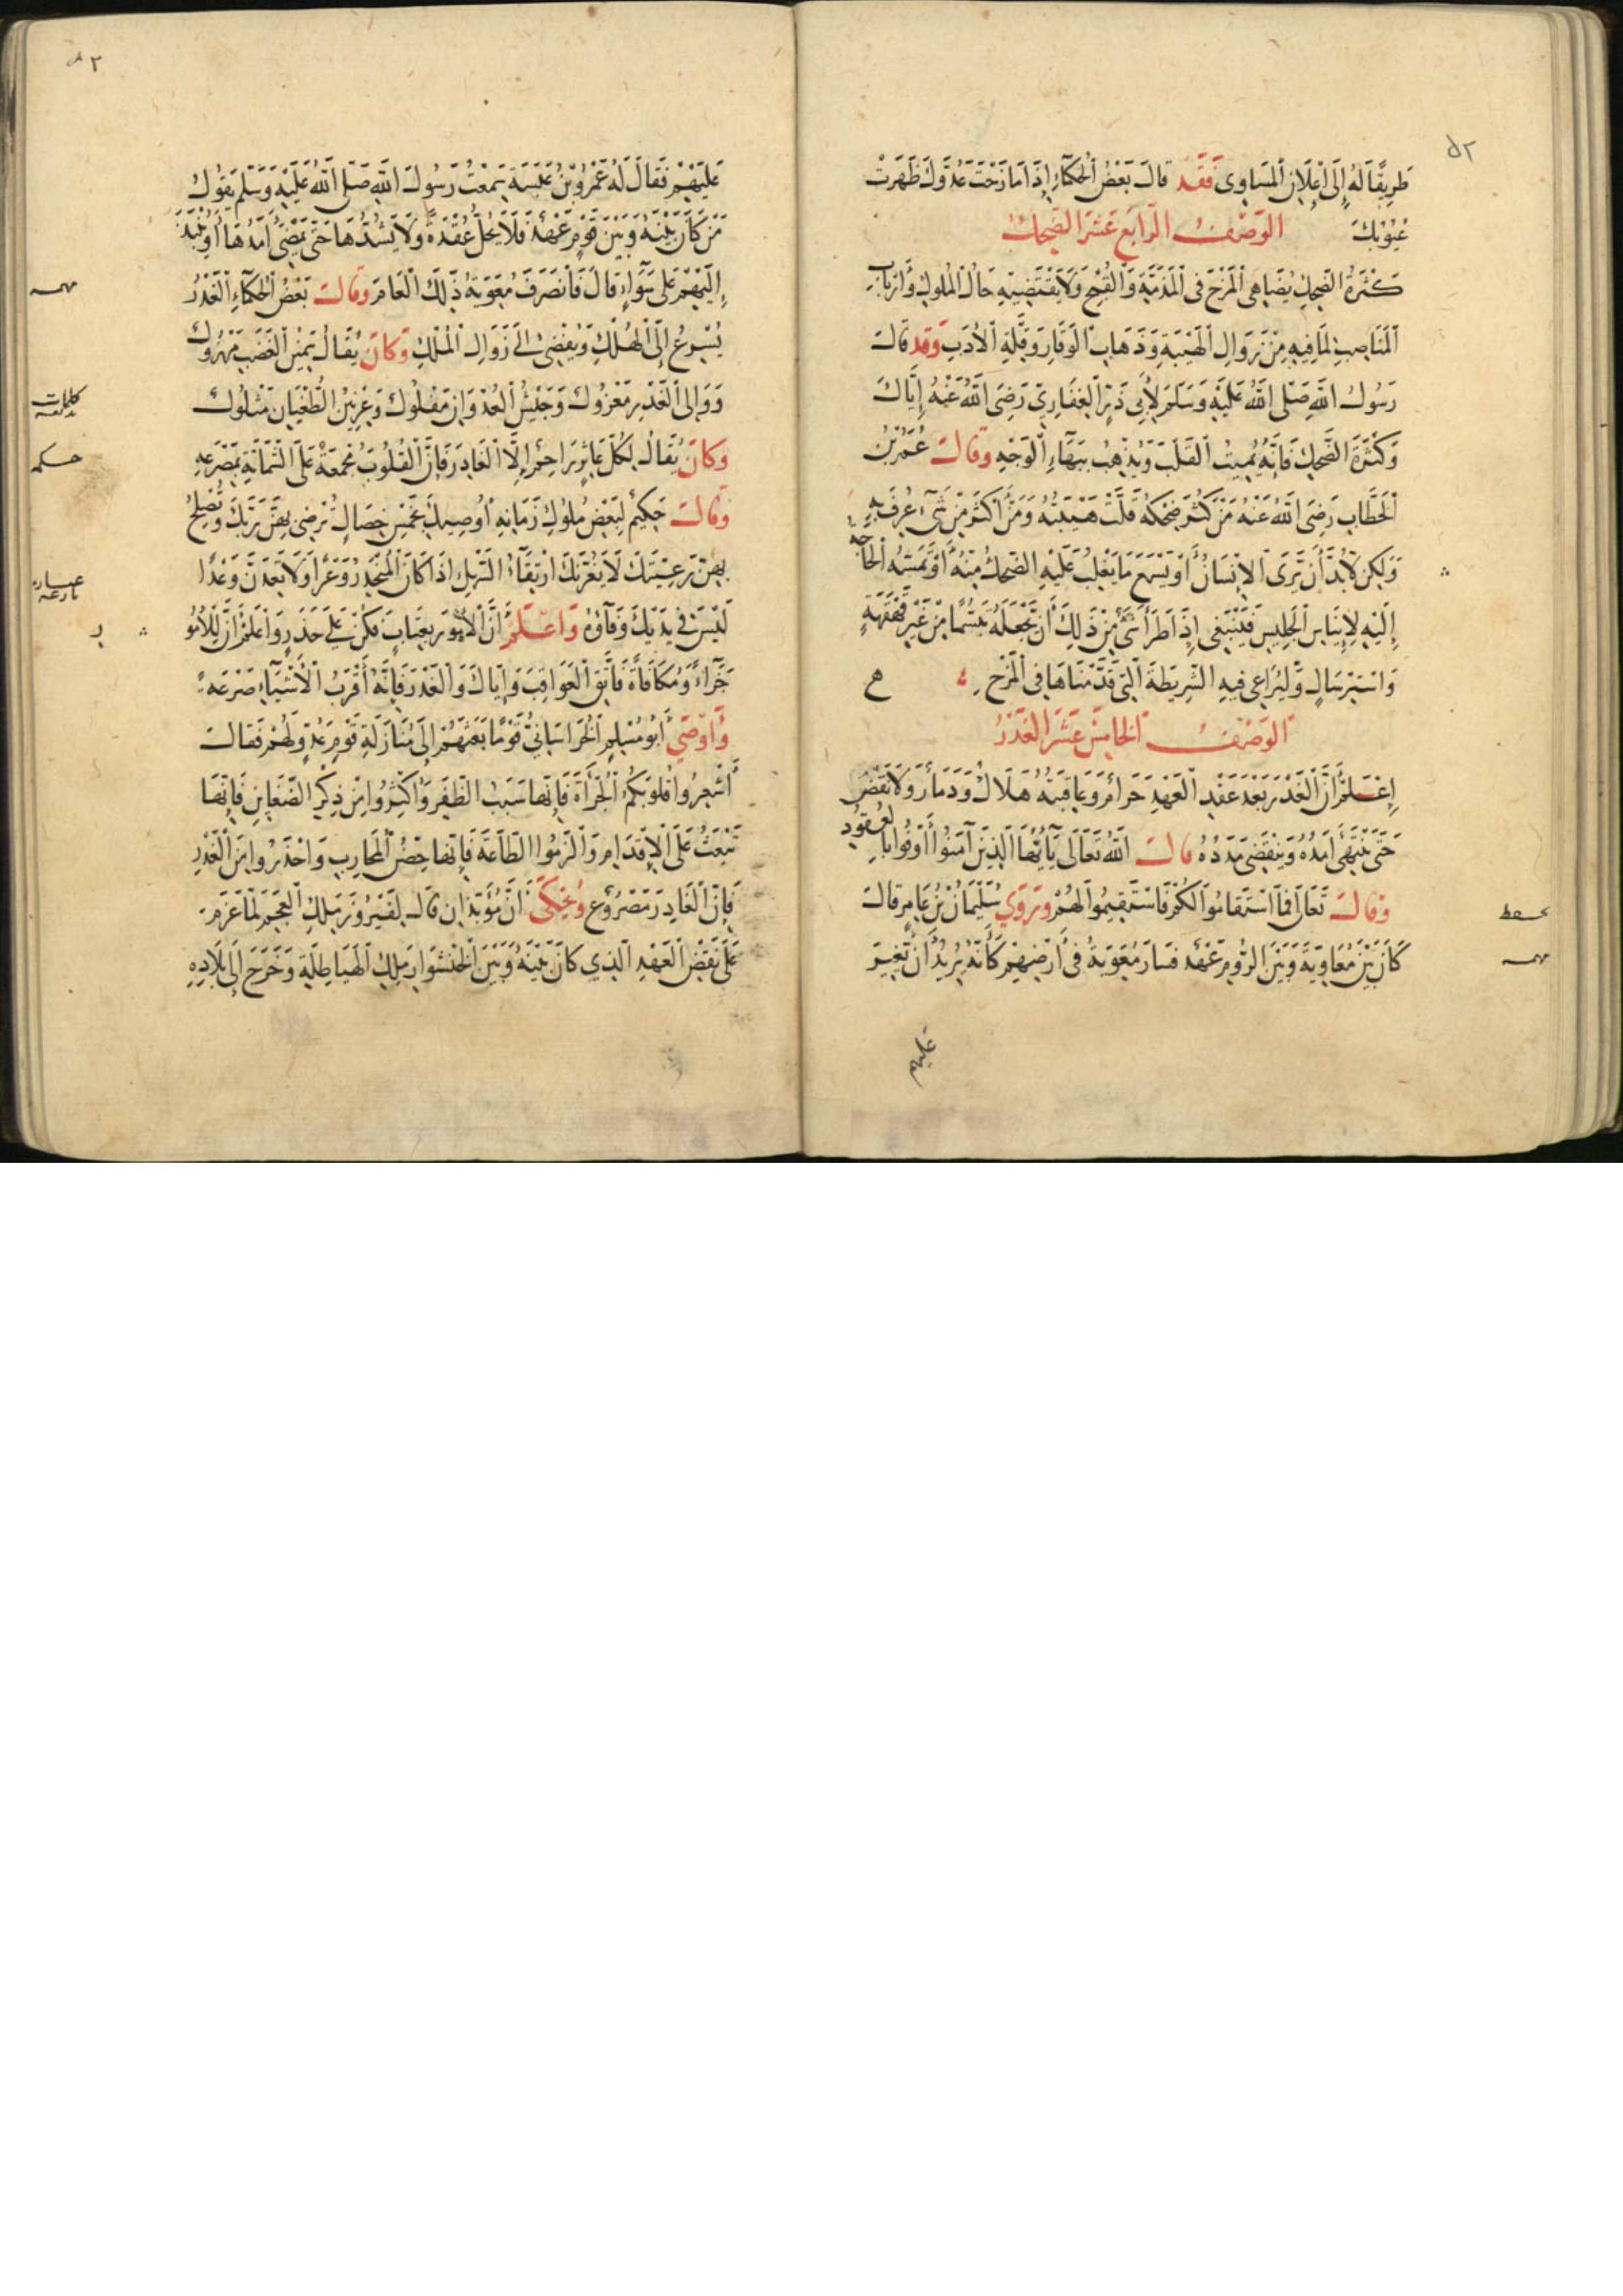 طَرِيقًا لَهُ إِلَى إِعْلَانِ الْمَسَاوِى فَقَد قَالَ بَعْضُ الْحُكَمَآءِ إِذَا مَازَحْتَ عَدُوَّكَ ظَهَرَتْ
عُيُوبُكَ الوَصْفُ الرَّابِعَ عَشَرَ الضَّحِكُ
كَثْرَةُ الضَّحِكِ يُضَاهِى الْمَزْحَ فِى الْمَذَمَّةِ وَالْقُبْحِ وَلَا يَقْتَضِيهِ حَالُ الْمُلُوكِ وَأَرْبَابِ
الْمَنَاصِبِ لِمَا فِيهِ مِنْ زَوَالِ الْهَيْبَةِ وَذَهَابِ الْوَقَارِ وَقِلَّةِ الْأَدَبِ وَقَد قَالَ
رَسُولُ اللهِ صَلَّى اللهُ عَلَيْهِ وَسَلَّمَ لِأَبِى ذَرٍّ الْغِفَارِيِّ رَضِىَ اللهُ عَنْهُ إِيَّاكَ
وَكَثْرَةَ الضَّحِكِ فَإِنَّهُ يُمِيتُ الْقَلْبَ وَيُذْهِبُ بِبَهَآءِ الْوَجْهِ وَقَالَ عُمَرُ بْنُ
الْخَطَّابِ رَضِىَ اللهُ عَنْهُ مَنْ كَثُرَ ضِحْكُهُ قَلَّتْ هَيْبَتُهُ وَمَنْ أَكْثَرَ مِنْ شَىْءٍ عُرِفَ بِهِ
وَلٰكِنْ لَابُدَّ أَنْ يَرَى الْإِنْسَانُ أَوْ يَسْمَعَ مَا يَغْلِبُ عَلَيْهِ الضَّحِكُ مِنْهُ أَوْ تَمَسُّهُ الْحَاجَةُ
إِلَيْهِ لِإِينَاسِ الْجَلِيسِ فَيَنْبَغِى إِذَا طَرَأَ شَىْءٌ مِنْ ذَلِكَ أَنْ يَجْعَلَهُ تَبَسُّمًا مِنْ غَيْرِ قَهْقَهَةٍ
وَاسْتِرْسَالٍ وَلْيُرَاعِى فِيهِ الشَّرِيطَةَ الَّتِى قَدَّمْنَاهَا فِى الْمَزْحِ
الوَصْفُ الْخَامِسَ عَشَرَ الْغَدْرُ
إِعْلَمْ أَنَّ الْغَدْرَ بَعْدَ عَقْدِ الْعَهْدِ حَرَامٌ وَعَاقِبَتُهُ هَلَاكٌ وَدَمَارٌ وَلَا نَقْضَ
حَتَّى يَنْتَهِىَ أَمَدُهُ وَيَنْقَضِىَ مَدَدُهُ قَالَ اللهُ تَعَالَى يَآأَيُّهَا الَّذِينَ آمَنُوا أَوْفُوا بِالْعُقُودِ
وَقَالَ تَعَالَى فَمَا اسْتَقَامُوا لَكُمْ فَاسْتَقِيمُوا لَهُمْ وَرَوَى سُلَيْمَانُ بْنُ عَامِرٍ قَالَ
كَانَ بَيْنَ مُعَاوِيَةَ وَبَيْنَ الرُّومِ عَهْدٌ فَسَارَ مُعَوِيَةُ فِى أَرْضِهِمْ كَأَنَّهُ يُرِيدُ أَنْ يُغِيرَ
عليهم
عَلَيْهِمْ فَقَالَ لَهُ عَمْرُو بْنُ عَبَسَةَ سَمِعْتُ رَسُولَ اللهِ صَلَّى اللهُ عَلَيْهِ وَسَلَّمَ يَقُولُ
مَنْ كَانَ بَيْنَهُ وَبَيْنَ قَوْمٍ عَهْدٌ فَلَا يَحُلُّ عُقْدَةً وَلَا يَشُدُّهَا حَتَّى يَمْضِىَ أَمَدُهَا أَوْ يَنْبِذَ
إِلَيْهِمْ عَلَى سَوَآءٍ قَالَ فَانْصَرَفَ مُعَوِيَةُ ذَلِكَ الْعَامَ وَقَالَ بَعْضُ الْحُكَمَآءِ الْغَدْرُ
يُسْرِعُ إِلَى الْهُلْكِ وَيُفْضِى إِلَى زَوَالِ الْمُلْكِ وَكَانَ يُقَالُ يَمِينُ الْغَضَبِ مَهْرُوكٌ
وَوَالِى الْغَدْرِ مَعْزُولٌ وَجَيْشُ الْعُدْوَانِ مَفْلُولٌ وَعَرِينُ الطُّغْيَانِ مَثْلُولٌ
وَكَانَ يُقَالُ لِكُلِّ عَاثِرٍ رَاحِمٌ إِلَّا الْغَادِرَ فَإِنَّ الْقُلُوبَ مُجْمِعَةٌ عَلَى الشَّمَاتَةِ بِمَصْرَعِهِ
وَقَالَ حَكِيمٌ لِبَعْضِ مُلُوكِ زَمَانِهِ أُوصِيكَ بِخَمْسِ خِصَالٍ تُرْضِى بِهِنَّ رَبَّكَ وَتُصْلِحُ
بِهِنَّ رَعِيَّتَكَ لَا يَغُرَّنَّكَ ارْتِقَآءُ السَّهْلِ إِذَا كَانَ الْمُنْحَدَرُ وَعْرًا وَلَا تَعِدَنَّ وَعْدًا
لَيْسَ فِى يَدَيْكَ وَفَاؤُهُ وَاعْلَمْ أَنَّ الْأُمُورَ بَغَتَاتٌ فَكُنْ عَلَى حَذَرٍ وَاعْلَمْ أَنَّ لِلْأُمُو
جَزَآءً وَمُكَافَأَةً فَاتَّقِ الْعَوَاقِبَ وَإِيَّاكَ وَالْغَدْرَ فَإِنَّهُ أَقْرَبُ الْأَشْيَآءِ صَرْعَةً
وَأَوْصَى أَبُو مُسْلِمٍ الْخُرَاسَانِيُّ قَوْمًا بَعَثَهُمْ إِلَى مُنَازَلَةِ قَوْمٍ عَدُوٍّ لَهُمْ فَقَالَ
أَشْعِرُوا قُلُوبَكُمُ الْجُرْأَةَ فَإِنَّهَا سَبَبُ الظَّفَرِ وَأَكْثِرُوا مِنْ ذِكْرِ الضَّغَايِنِ فَإِنَّهَا
تَبْعَثُ عَلَى الْإِقْدَامِ وَالْزَمُوا الطَّاعَةَ فَإِنَّهَا حِصْنُ الْمُحَارِبِ وَاحْذَرُوا مِنَ الْغَدْرِ
فَإِنَّ الْغَادِرَ مَصْرُوعٌ وَيُحْكَى أَنَّ مُوبَذَانَ قَالَ لِفَيْرُوزَ مَلِكِ الْعَجَمِ لَمَّا عَزَمَ
عَلَى نَقْضِ الْعَهْدِ الَّذِي كَانَ بَيْنَهُ وَبَيْنَ الْخُنْشَوَارِ مَلِكِ الْهَيَاطِلَةِ وَخَرَجَ إِلَى بِلَادِهِ